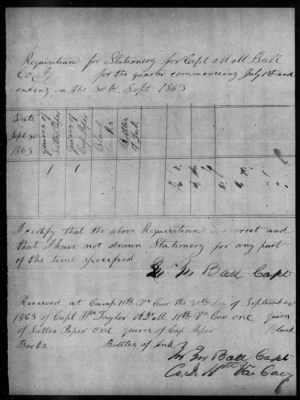 Requisition for Stationery for Capt M M Ball
Co. for the quarter commencing July 1st and
ending on the 30th Sept 1863
Date
Sept 30
1863
quires of
Letter Paper
quires of
Cap Paper
Blank
Books
Bottles
of Ink
1 1
I certify that the above Requisition is correct and
that I have not drawn Stationery for any part
of the time specified
M M Ball Capt
Received at Camp 11th Va Cav the 30th day of September
1863 of Capt Wm Taylor A.Q.M 11th Va Cav one quires
of Letter Paper one quires of Cap Paper Blank
Books Bottles of Ink
M M Ball Capt
Co. 11th Va Cavy